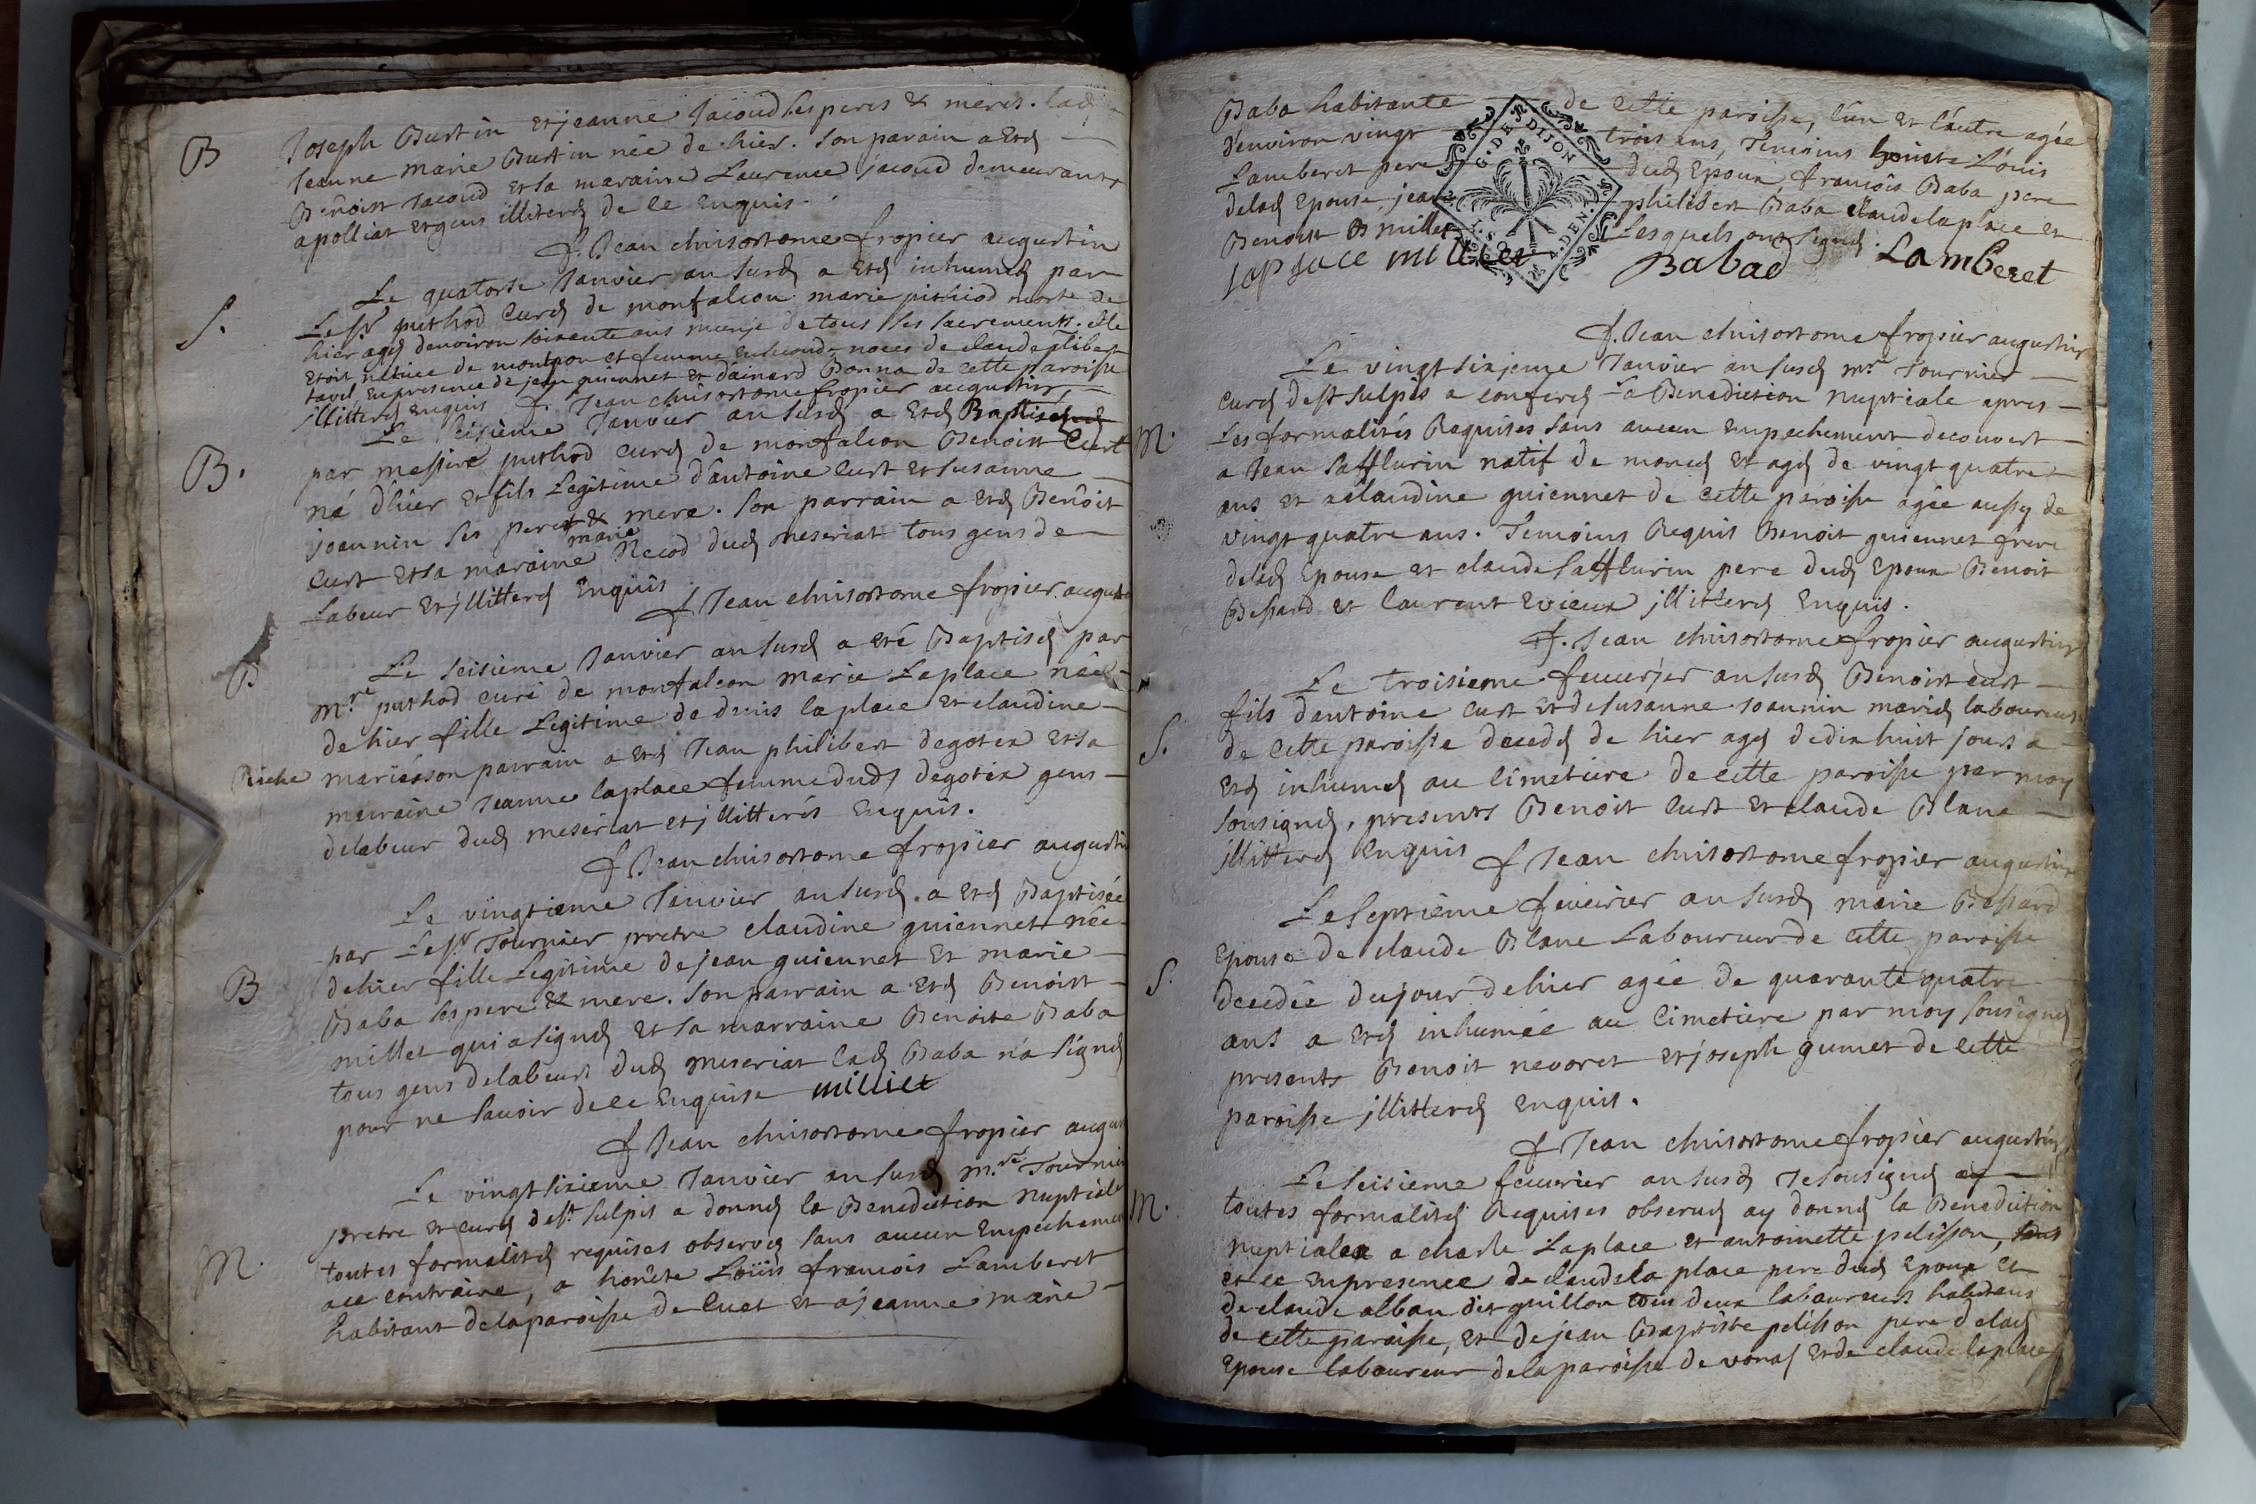 B
Joseph Burtin et jeanne Jacoud ses peres & meres. lad
Jeanne marie Burtin née de hier. son parain a eté
Benoist Jacoud et sa maraine Laurence jacoud demeurants
apolliat et gens illiteré de ce Enquis.
f. Jean chrisostome fropier augustin
S.
Le quatorse Janvier an susd a eté inhumé par
Le sr puthod Curé de monfalcon marie pithiod morte de
hier agé denviron soixante ans munje de tous ses sacrements. elle
etoit native de montpon et femme en second noces de claude plibet
tavel, en presence de jean guiennet et dainard Bonna de cette paroisse
illitteré enquis f. Jean chrisostome fropier augustin
B.
Le seisième Janvier an susd a eté Baptisé
par messire puthod curé de monfalcon Benoist Curt
né d'hier et fils Legitime d'antoine curt et susanne
joannin ses peres & mere. son parrain a eté Benoit
curt et sa maraine marie Recod dud meseriat tous gens de
Labeur et jllitteré Enquis
f Jean chrisostome fropier augustin
B
Le seisième Janvier an susd a eté Baptisé par
mre puthod curé de monfalcon marie Laplace née
de hier fille Legitime de denis laplace et claudine
Riche
mariés son parrain a eté Jean philibert degotex et sa
marraine Jeanne laplace femme dud degotex gens
delabeur dud meseriat et jllitterés Enquis.
f Jean chrisostome fropier augustin
B
Le vingtieme Janvier an susd. a eté Baptisée
par Le sr Tournier pretre claudine guiennet née
de hier fille Legitime de jean guiennet et marie
Baba ses pere & mere. son parrain a eté Benoist
millet qui a signé et sa marraine Benoite Baba
tous gens delabeurs dud meseriat lad Baba n'a signé
pour ne savoir de ce Enquise milliet
f Jean chrisostome fropier augustin
M.
Le vingt sixieme Janvier an susd mre Tournier
pretre et curé de st sulpis a donné la Benediction nuptiale
toutes formalités requises observés sans aucun Empechement
ace contraire, a honéte Loüis francois Lamberet
habitant dela paroisse de cuet et a jeanne marie
Baba habitante de cette paroisse, l'un et l'autre agée
denviron vingt trois ans, Temoins Louis
Lamberet pere dud Epoux, francois Baba pere
delad Epouse, jean philibert Baba claude laplace et
Benoist milliet Lesquels ont signé.
G. DE DIJON
laplace milliet Babad Lamberet
f. Jean chrisostome fropier augustin
M.
Le vingt sixjeme Janvier an susd mre Tournier
curé de st sulpis a conferé La Benediction nuptiale apres
Les formalités Requises sans aucun empechement decouvert
a Jean Safflurin natif de et agé de vingt quatre
ans et a claudine guiennet de cette paroisse agée aussy de
vingt quatre ans. Temoins Requis Benoit guiennet frere
delad Epouse et claude Safflurin pere dud Epoux Benoit
Bessard et laurent Evieux jllitteré Enquis.
f. Jean chrisostome fropier augustin
S.
Le troisieme feuvrjer an susd Benoist curt
fils dantoine curt et de susanne Joannin mariés laboureurs
de cette paroisse decedé de hier agé dedix huit jours a
eté inhumé au cimetiere de cette paroisse par moy
sousigné, presents Benoit curt et claude Blanc
jllitteré Enquis f Jean chrisostome fropier augustin
S.
Le septième feuvrier an susd marie Bessard
Epouse de claude Blanc Laboureur de cette paroisse
decedée du jour de hier agée de quarante quatre
ans a eté inhumée au cimetiere par moy sousigné
presents Benoit nevoret et joseph gumet de cette
paroisse jllitteré Enquis.
f Jean chrisostome fropier augustin
M.
Le seisieme feuvrier an susd Je sousigné
toutes formalités Requises observés ay donné la Benediction
nuptiale a charle Laplace et antoinette pelisson,
et ce en presence de claude la place pere dud Epoux et
de claude alban dit guillon tous deux laboureurs habitans
de cette paroisse, et de jean Baptiste pelisson pere delad
Epouse laboureur dela paroisse de vonas et de claude laplace